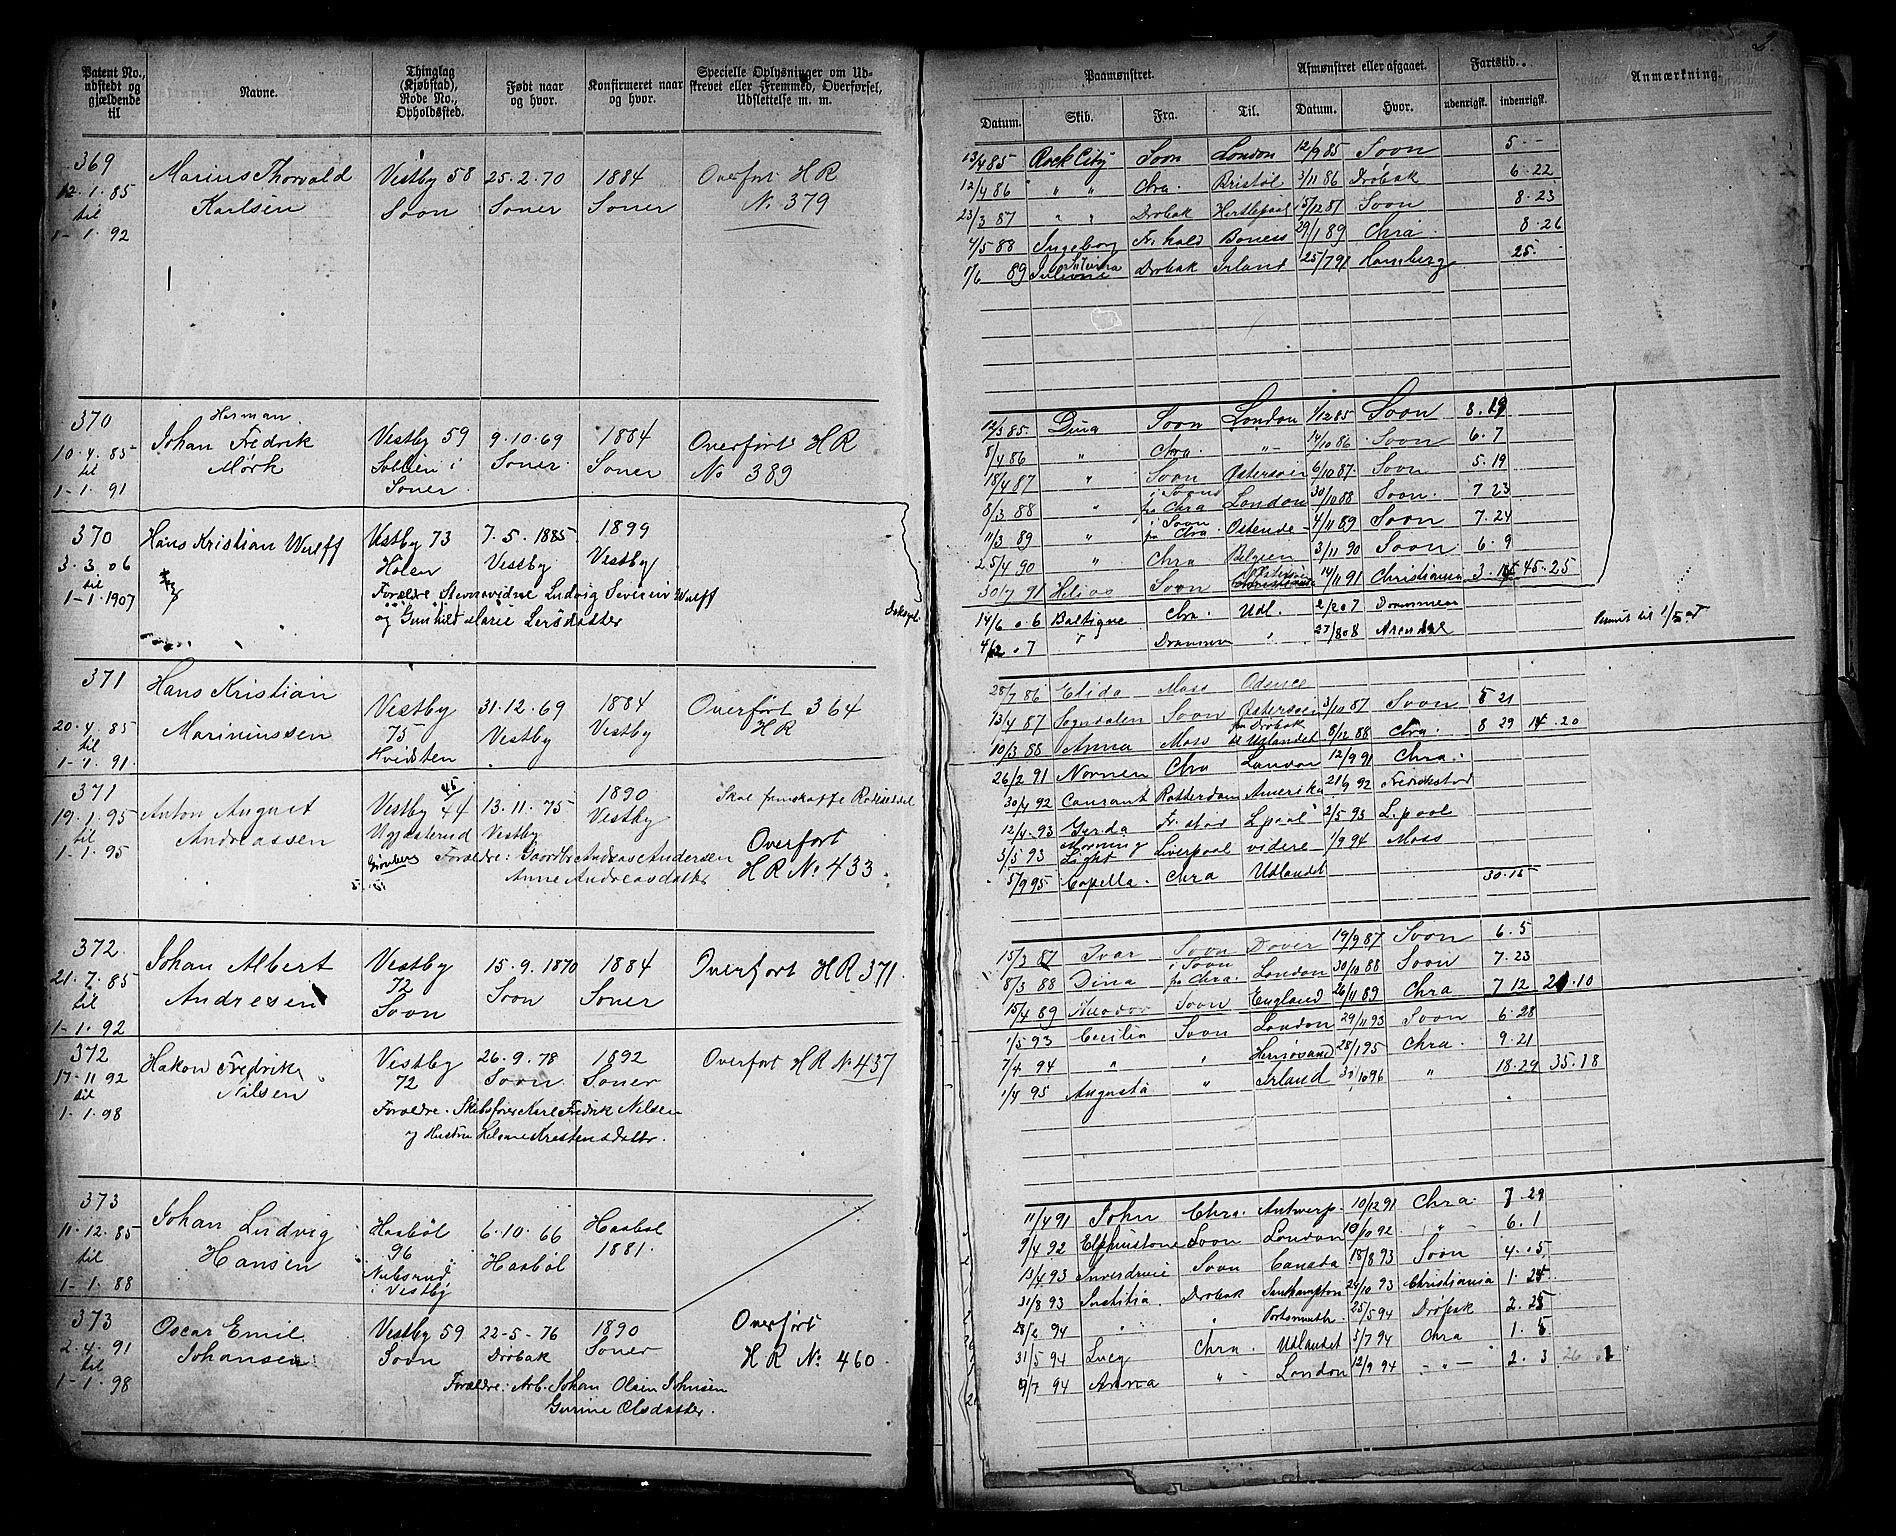 2.
Patent No., udstedt og gjældende til
Navne.
Thinglag (Kjøbstad), Rode No., Opholdssted.
Født naar og hvor.
Konfirmeret naar og hvor.
Specielle Oplysninger om Udskrevet eller Fremmed, Overførsel, Udslettelse m. m.
369
12-1.85
til
1-1.92
Marius Thorvald
Karlsen
Vestby 58
Soon
25.2.70
Soner
1884
Soner
Overført HR
No 379
370
10.4.85
til
1-1.91
Herman
Johan Fredrik
Mørk
Vestby 59
Soner
9.10.69
Soner
1884
Soner
Overført HR
No 389
370
3.3.06
til
1-1-1907
Hans Kristian Wulff
Vestby 73
Holen
7.5.1885
Vestby
1899
Vestby
Forældre Ludvig Severin Wulff
og Gunhild Marie
371
20.4.85
til
1-1.91
Hans Kristian
Marinussen
Vestby
75
Hvidsten
31.12.69
Vestby
1884
Vestby
Overført 364
HR
371
19.1.95
til
1-1.95
Anton August
Andreassen
Vestby 44
45
13.11.75
Vestby
1890
Vestby
Forældre: Andreas Andersen
Anne Andreasdatter
Overført
HR No 433
372
21.7.85
til
1-1.92
Johan Albert
Andresen
Vestby
72
Soon
15.9.1870
Soon
1884
Soner
Overført HR 371
372
17-11 92
til
1-1.98
Hakon Fredrik
Nilsen
Vestby
72
26.9.78
Soon
1892
Soner
Overført HR No 437
Forældre. Skibsfører Karl Fredrik Nilsen
og Hustru
373
11.12.85
til
1-1.88
Johan Ludvig
Hansen
Haabøl
96
i Vestby
6.10.66
Haabøl
Haabøl
1881.
373
2.4.91
til
1-1.98
Oscar Emil
Johansen
Vestby 59
Soon
22-5-76
Drøbak
1890
Soner
Overført
HR No: 460
Forældre: Arb. Johan Olsen Johnsen
Gurine Olsdatter.
Paamønstret.
Afmønstret eller afgaaet.
Fartstid.
Anmærkning.
Datum.
Skib.
Fra.
Til.
Datum.
Hvor.
udenrigsk.
indenrigsk.
13/4 85 Rock City Soon London 12/9 85 Soon 5 --
12/4 86 " " Chra. Bristol 3/11 86 Drøbak 6.22
23/3 87 " " Drøbak 15/12 87 Soon 8.23
4/5 88 Ingeborg Fr. hald Boness 29/1 89 Chra 8.26
1/6 89 Drøbak Irland 25/7 91 Hamburg 25.
12/3 85. Dina Soon London 1/12 85 Soon 8.19
8/4 86 " Chra. " 14/10 86 Soon 6.7
18/4 87 " Soon Østersøen 6/10 87. Soon 5.19
8/3 88 " fra Chra London 30/10 88 Soon. 7 23
11/3 89 " i Soon fra Chra Ostende 4/11 89 Soon 7.24
25/4 90 " Chra Belgien 3/11 90 Soon 6.9
30/7 91 Helios Soon 14/11 91 Christiania 3. 45.25
14/6 06 Baltigue Chra. Udl. 2/2 07 Drammen
4/12 07 " Drammen 27/8 08 Arendal
28/7 86 Elida Moss Odense
13/4 87 Sogndalen Soon Østersøen 3/10 87 Soon 5 21
10/3 88 Anna Moss fra Drøbak til Udlandet 8/12 88 Chra. 8 29 14.20
26/2 91 Nornen Chra London 12/9 91 Chra.
30/4 92 Courant Rotterdam Amerika 21/6 92 Fredrikstad
12/4.93 Gyrda Fr. stad L.pool 2/5 93 L.pool
3/5 93 Morning Light Liverpool videre 1/9 94 Moss
5/9 95 Capella. Chra Udlandet 30.15
15/3 87 Ivar Soon Dover 19/9 87 Soon 6.5
8/3 88 Dina i Soon fra Chra. London 30/10 88 Soon 7.23
15/4 89 Soon England 26/11 89 Chra 7 12 21.10
1/5 93 Cecilia Soon London 29/11 93 Soon 6.28
7/4 94 " " Hernøsand 28/1 95 Chra. 9.21
1/4 95 Augusta " Irland 30/10 96 " 18.29 35.18
11/4 91 John Chra. Antwerp. 10/12 91 Chra. 7.29
9/4 92 Elphinstone Soon London 10/10 92. " 6.1
13/4 93 Soon Canada 18/8 93 Soon 4.05
31/8 93 Justitia. Drøbak 24/10 93 Christiania 1.24
28/2 94 " " Portsmouth 25/5 94 Drøbak 2.25
31/5 94 Lucy Chra. Udlandet 5/7 94 Chra 1.5
9/7 94 Anna " London 12/9 94 " 2.3